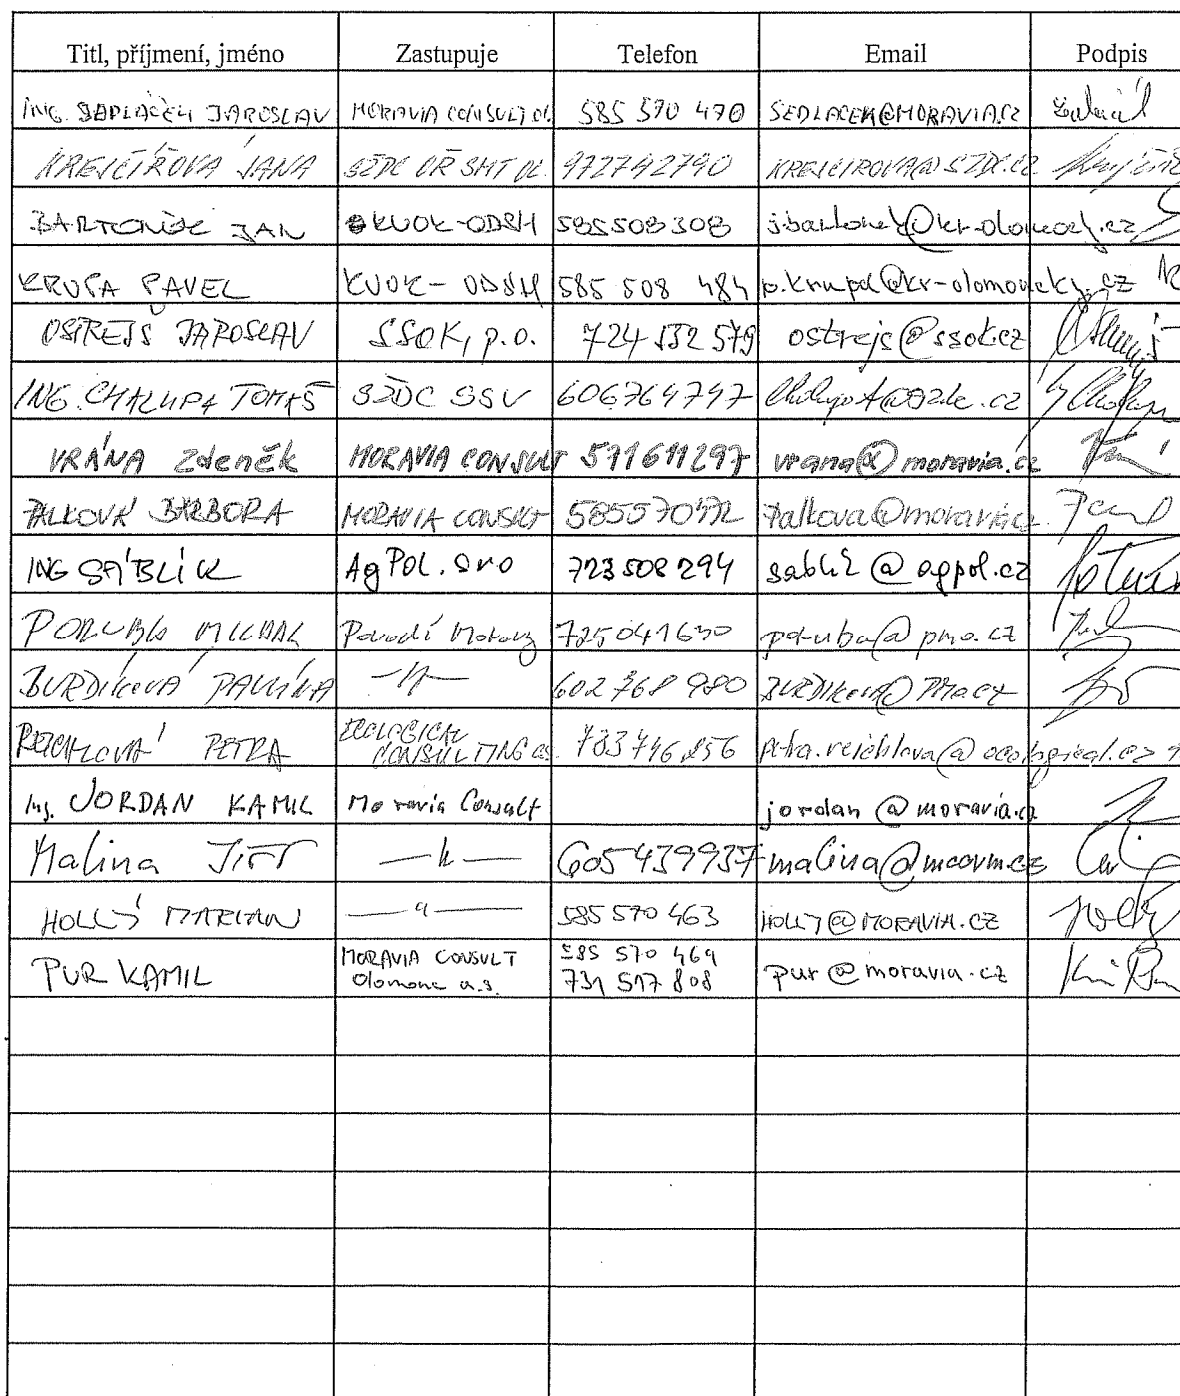 Titl, příjmení, jméno Zastupuje Telefon Email Podpis
ING. SEDLÁČEK JAROSLAV MORAVIA CONSULT OL. 585 570 470 SEDLACEK@MORAVIA.CZ
KREJČÍŘOVÁ JANA SŽDC OŘ SMT OL 972742790 KREJCIROVA@SZDC.CZ
BARTONÍK JAN KUOK-ODSH 585508308
KRUPA PAVEL KUOK-ODSH 585 508 484
OSTREJŠ JAROSLAV SSOK, p.o. 724 532 579 ostrejs@ssok.cz
ING. CHALUPA TOMÁŠ SŽDC SSV 606764747
VRÁNA Zdeněk MORAVIA CONSULT 571611297 vrana@moravia.cz
PALKOVÁ BARBORA MORAVIA CONSULT 585570472 Palkova@moravia.cz
ING SÁBLÍK AgPol. sro 723508294 sablik@agpol.cz
PORUBA MICHAL Povodí Moravy 725041630 poruba@pmo.cz
BURDÍKOVÁ PAVLÍNA —"— 602 768 980 BURDIKOVA@PMO.CZ
REICHLOVÁ PETRA ECOLOGICAL
CONSULTING a.s. petra.reichlova@ecological.cz
Ing. JORDAN KAMIL Moravia Consult jordan@moravia.cz
Malina Jiří —"— 605439937
HOLLÝ MARIAN —"— 585 570 463 HOLLY@MORAVIA.CZ
PUR KAMIL MORAVIA CONSULT
Olomouc a.s. 585 570 469
731 517 808 pur@moravia.cz